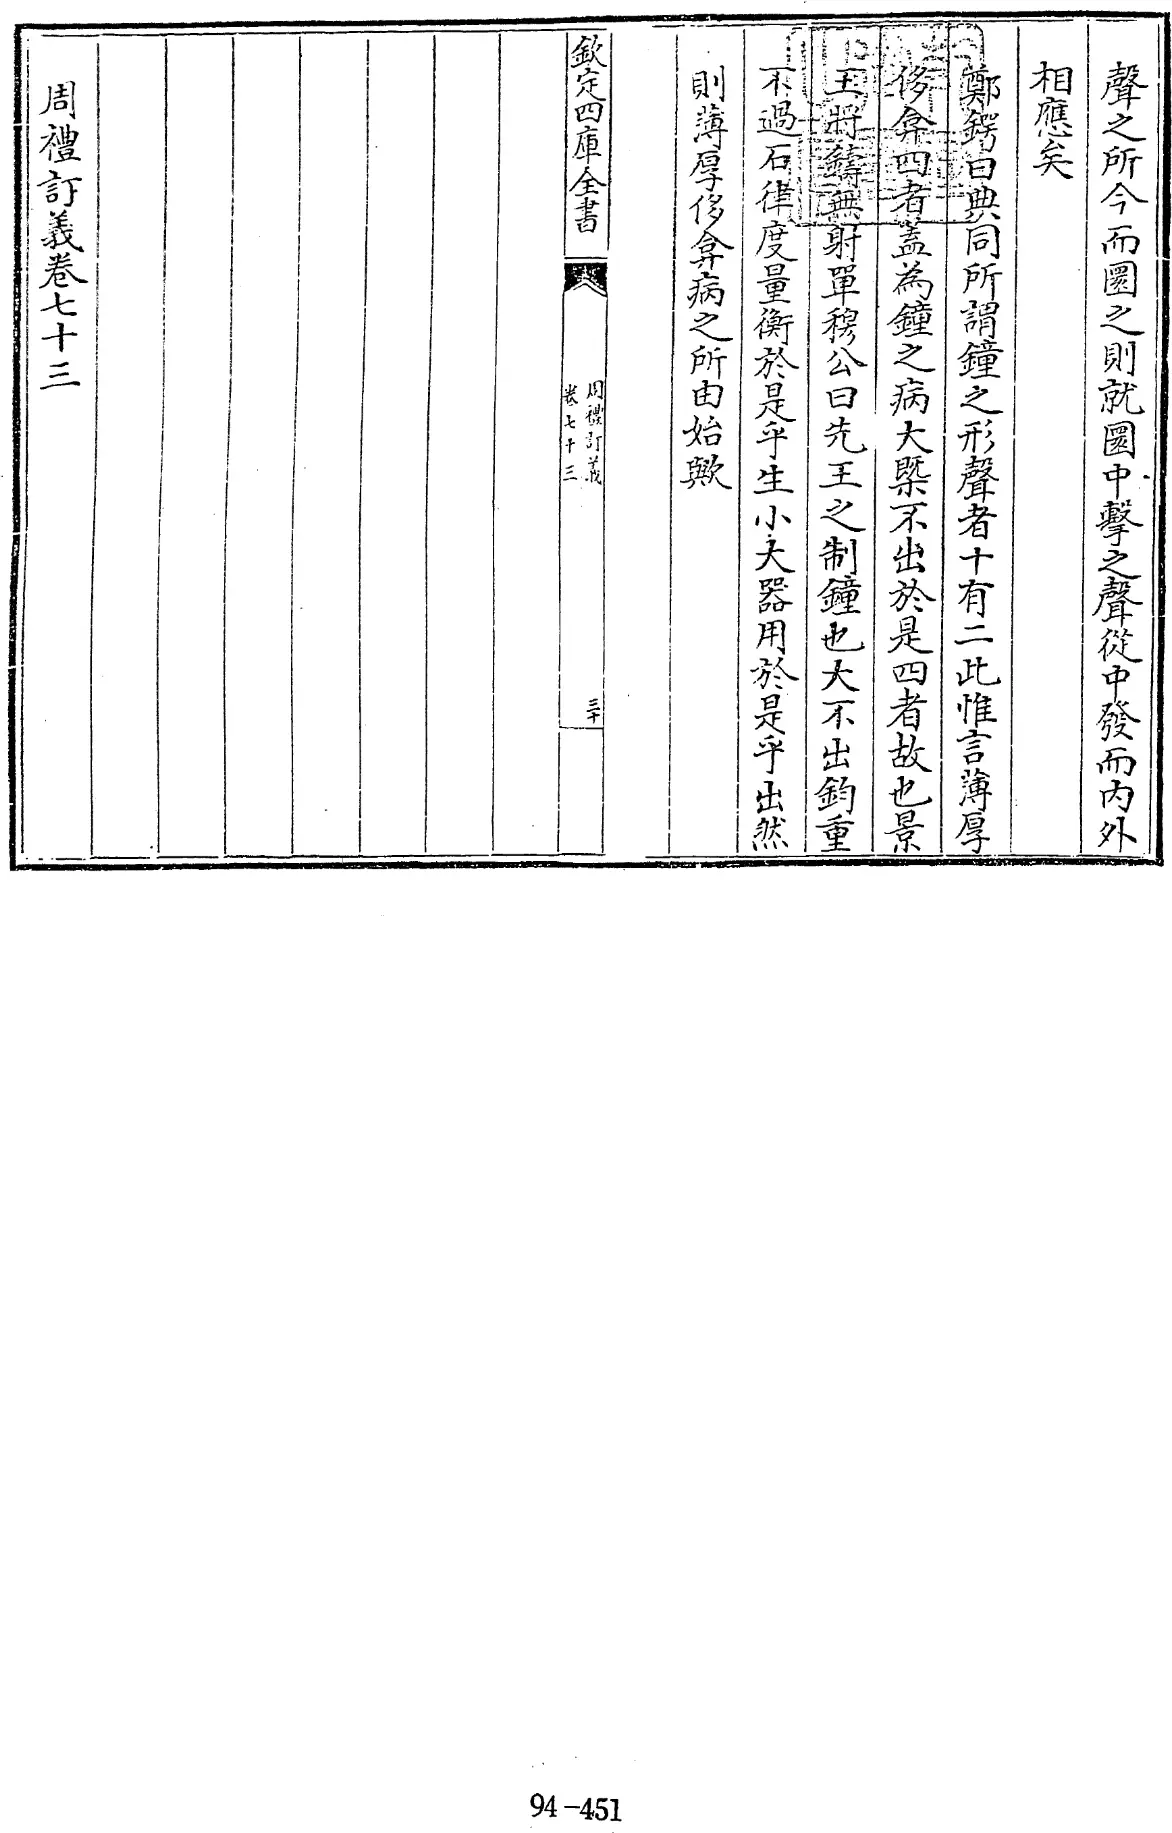 聲之所今而圜之則就圜中擊之聲從中發而内外
相應矣
鄭鍔曰典同所謂鐘之形聲者十有二此惟言薄厚
侈弇四者蓋為鐘之病大槩不出於是四者故也景
王將鑄無射單穆公曰先王之制鐘也大不出鈞重
不過石律度量衡於是乎生小大器用於是乎出然
則薄厚侈弇病之所由始歟
欽定四庫全書
周禮訂義
卷七十三
三十
周禮訂義卷七十三
94-451